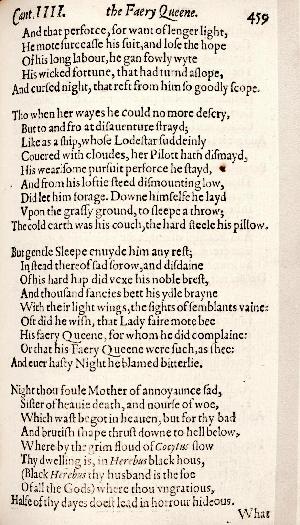 Cant. IIII. the Faery Queene. 459
And that perforce, for want of lenger light,
He mote surceasse his suit, and lose the hope
Of his long labour, he gan fowly wyte
His wicked fortune, that had turnd aslope,
And cursed night, that reft from him so goodly scope.
Tho when her wayes he could no more descry,
But to and fro at disauenture strayd;
Like as a ship, whose Lodestar suddeinly
Couered with cloudes, her Pilott hath dismayd,
His wearisome pursuit perforce he stayd,
And from his loftie steed dismounting low,
Did let him forage. Downe himselfe he layd
Vpon the grassy ground, to sleepe a throw;
The cold earth was his couch, the hard steele his pillow.
But gentle Sleepe enuyde him any rest;
In stead thereof sad sorow, and disdaine
Of his hard hap did vexe his noble brest,
And thousand fancies bett his ydle brayne
With their light wings, the sights of semblants vaine:
Oft did he wish, that Lady faire mote bee
His faery Queene, for whom he did complaine:
Or that his Faery Queene were such, as shee:
And euer hasty Night he blamed bitterlie.
Night thou foule Mother of annoyaunce sad,
Sister of heauie death, and nourse of woe,
Which wast begot in heauen, but for thy bad
And brutish shape thrust downe to hell below,
Where by the grim floud of Cocytus slow
Thy dwelling is, in Herebus black hous,
(Black Herebus thy husband is the foe
Of all the Gods) where thou vngratious,
Halfe of thy dayes doest lead in horrour hideous.
What